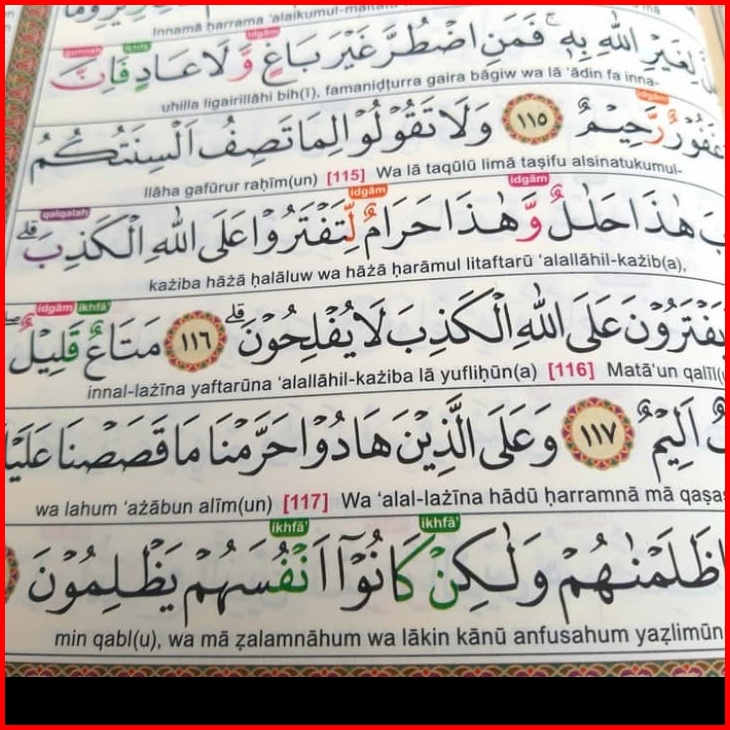 Innamā ḥarrama 'alaikumul-maitata
gunnah ikhfā' idgām
لِغَيْرِ اللّٰهِ بِهٖ ۚ فَمَنِ اضْطُرَّ غَيْرَ بَاغٍ وَّلَا عَادٍ فَاِنَّ
uhilla ligairillāhi bih(ī), famaniḍṭurra gaira bāgiw wa lā 'ādin fa inna-
idgām
غَفُوْرٌ رَّحِيْمٌ ١١٥ وَلَا تَقُوْلُوْا لِمَا تَصِفُ اَلْسِنَتُكُمُ
llāha gafūrur raḥīm(un) [115] Wa lā taqūlū limā taṣifu alsinatukumul-
qalqalah idgām idgām
هٰذَا حَلٰلٌ وَّهٰذَا حَرَامٌ لِّتَفْتَرُوْا عَلَى اللّٰهِ الْكَذِبَ ۗ
każiba hāżā ḥalāluw wa hāżā ḥarāmul litaftarū 'alallāhil-każib(a),
idgām ikhfā'
يَفْتَرُوْنَ عَلَى اللّٰهِ الْكَذِبَ لَا يُفْلِحُوْنَ ۗ ١١٦ مَتَاعٌ قَلِيْلٌ ۖ
innal-lażīna yaftarūna 'alallāhil-każiba lā yufliḥūn(a) [116] Matā'un qalīl(u
اَلِيْمٌ ١١٧ وَعَلَى الَّذِيْنَ هَادُوْا حَرَّمْنَا مَا قَصَصْنَا عَلَيْ
wa lahum 'ażābun alīm(un) [117] Wa 'alal-lażīna hādū ḥarramnā mā qaṣaṣ
ikhfā' ikhfā'
ظَلَمْنٰهُمْ وَلٰكِنْ كَانُوْٓا اَنْفُسَهُمْ يَظْلِمُوْنَ
min qabl(u), wa mā ẓalamnāhum wa lākin kānū anfusahum yaẓlimūn